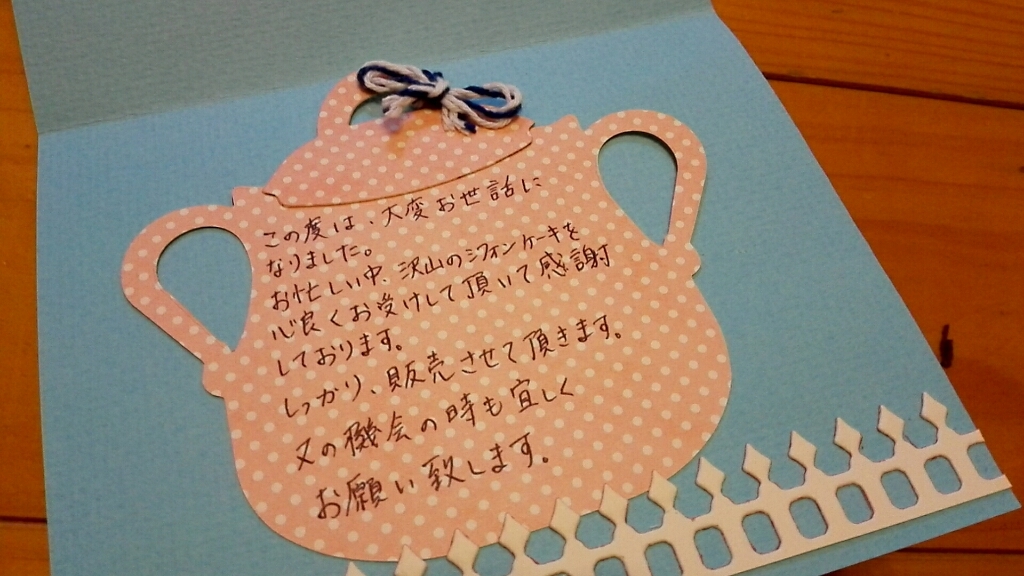 この度は、大変お世話に
なりました。
お忙しい中、沢山のシフォンケーキを
心良くお受けして頂いて感謝
しております。
しっかり、販売させて頂きます。
又の機会の時も宜しく
お願い致します。